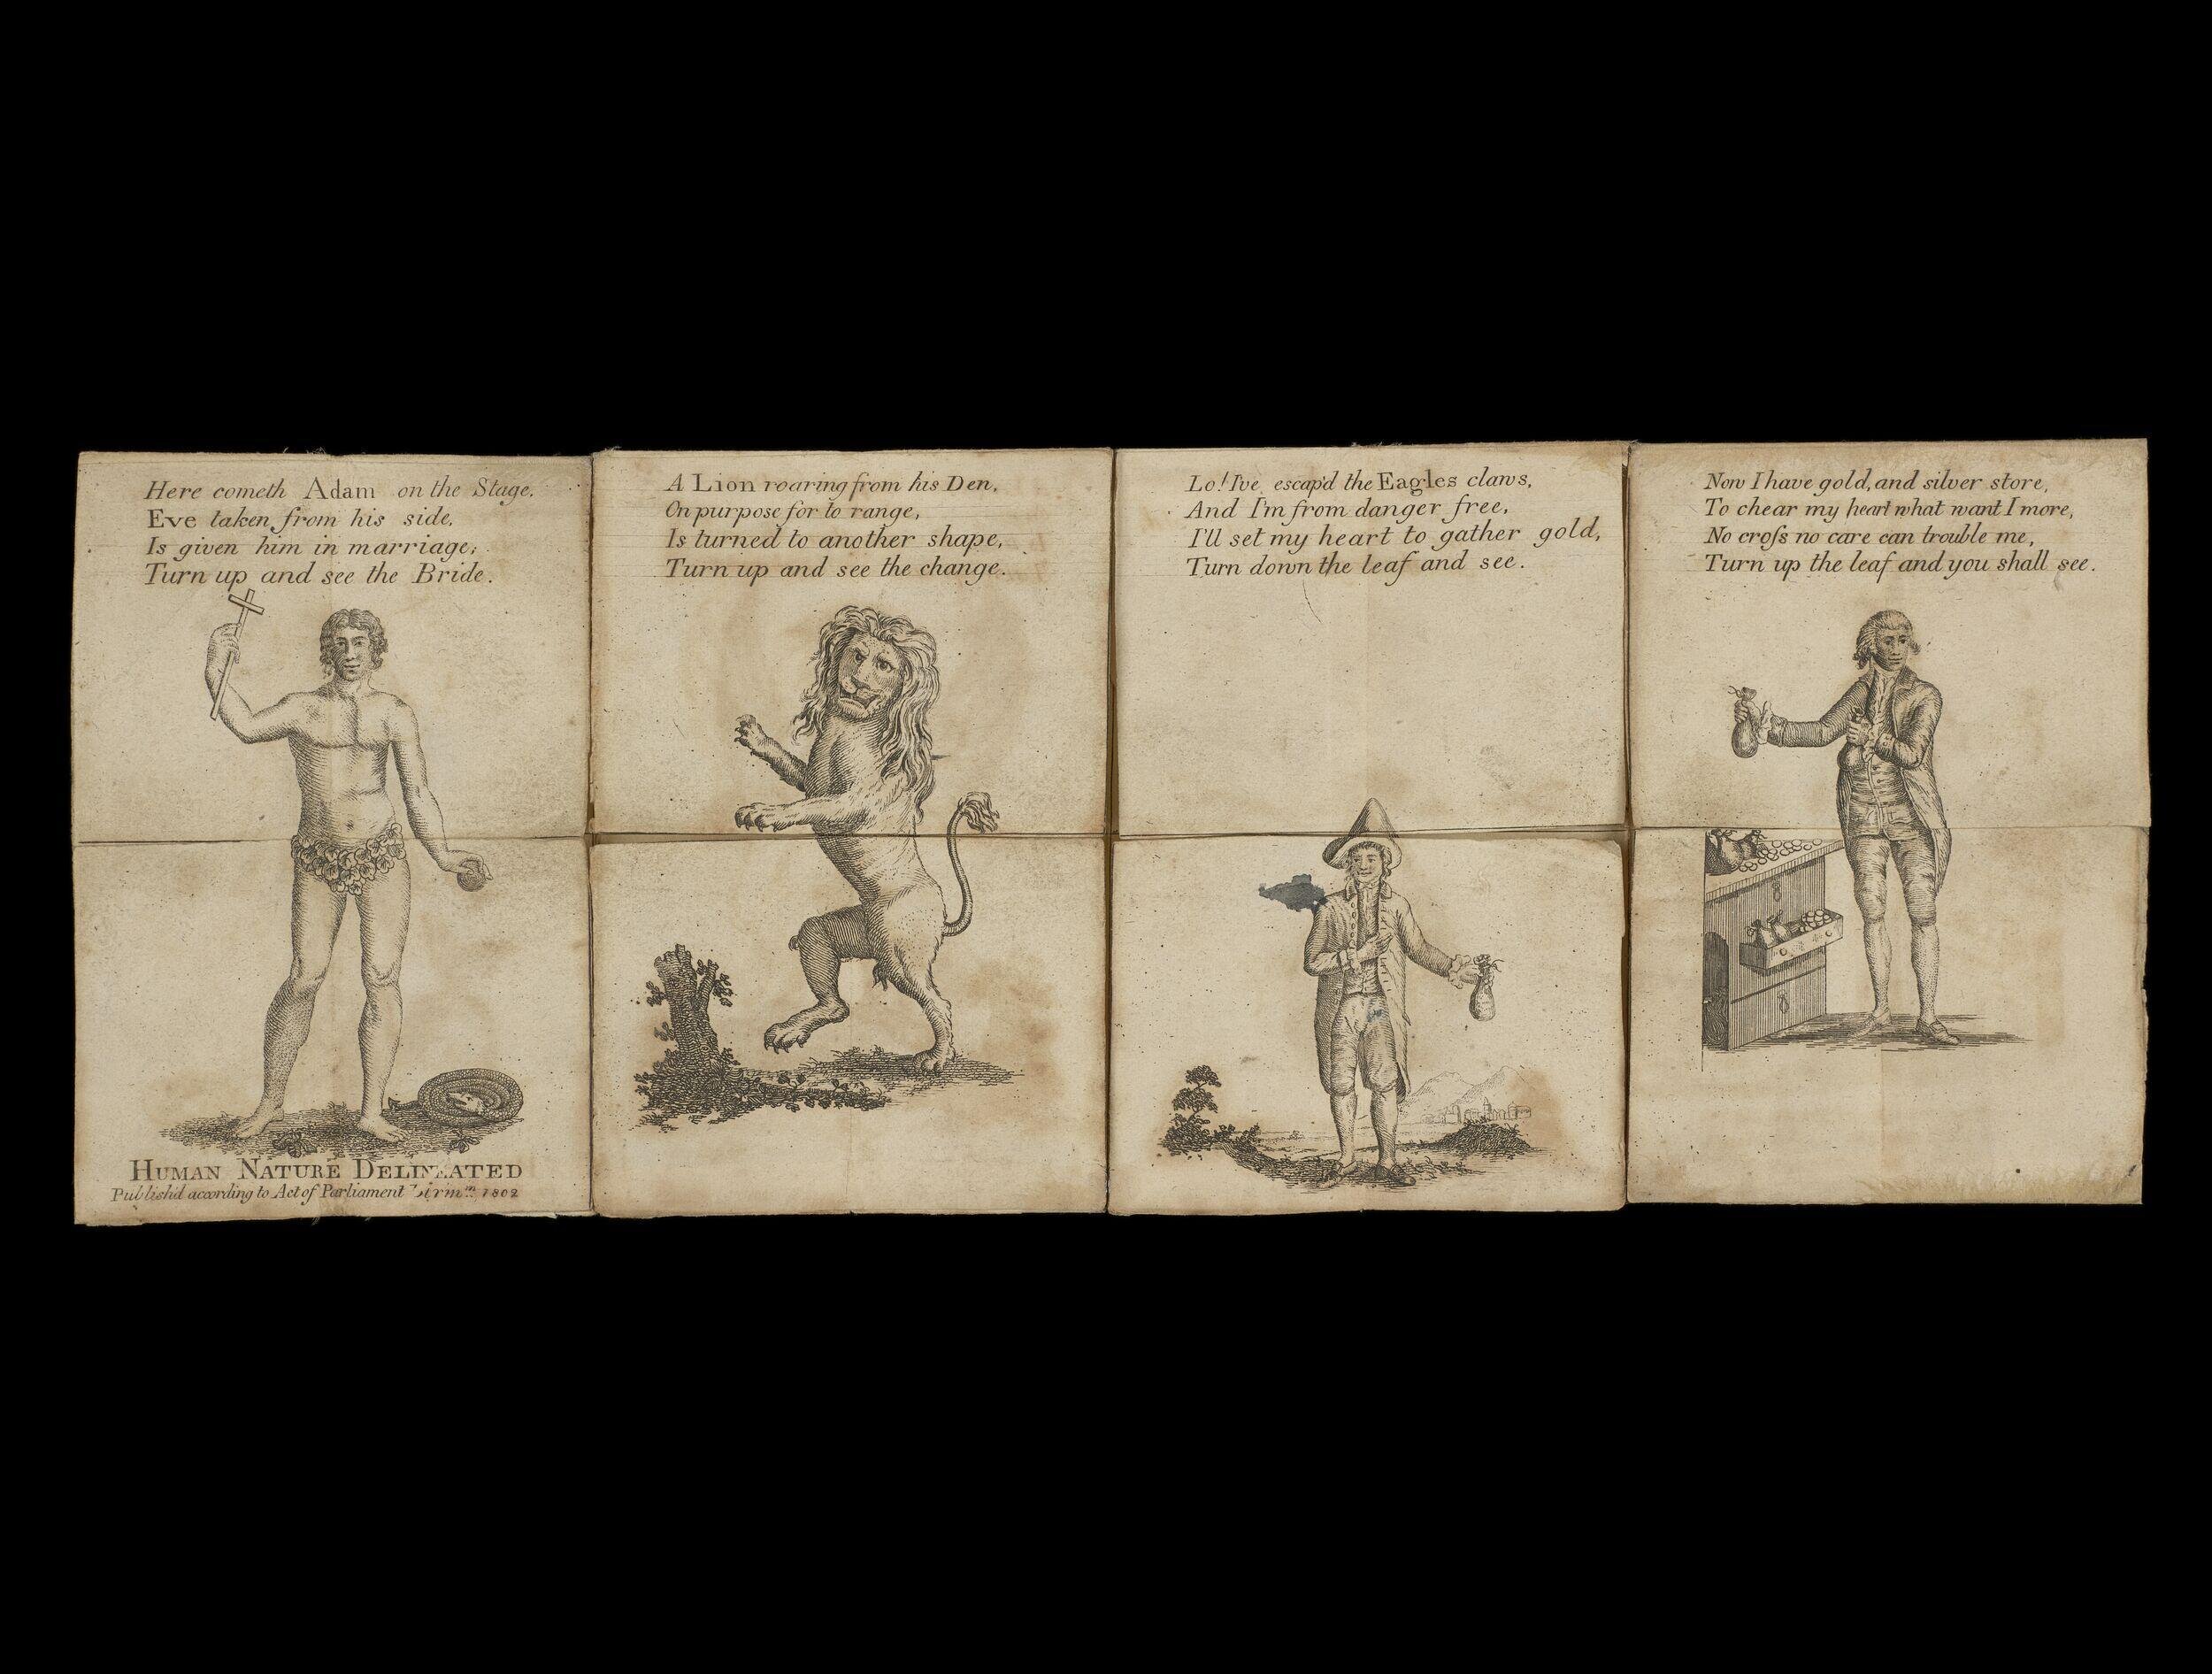 Here cometh Adam on the Stage.
Eve taken from his side,
Is given him in marriage;
Turn up and see the Bride.
HUMAN NATURE DELINEATED
Publish'd according to Act of Parliament 1802
A Lion roaring from his Den,
On purpose for to range,
Is turned to another shape,
Turn up and see the change.
Lo! I've escap'd the Eagles claws,
And I'm from danger free,
I'll set my heart to gather gold,
Turn down the leaf and see.
Now I have gold, and silver store,
To chear my heart what want I more,
No croſs no care can trouble me,
Turn up the leaf and you shall see.